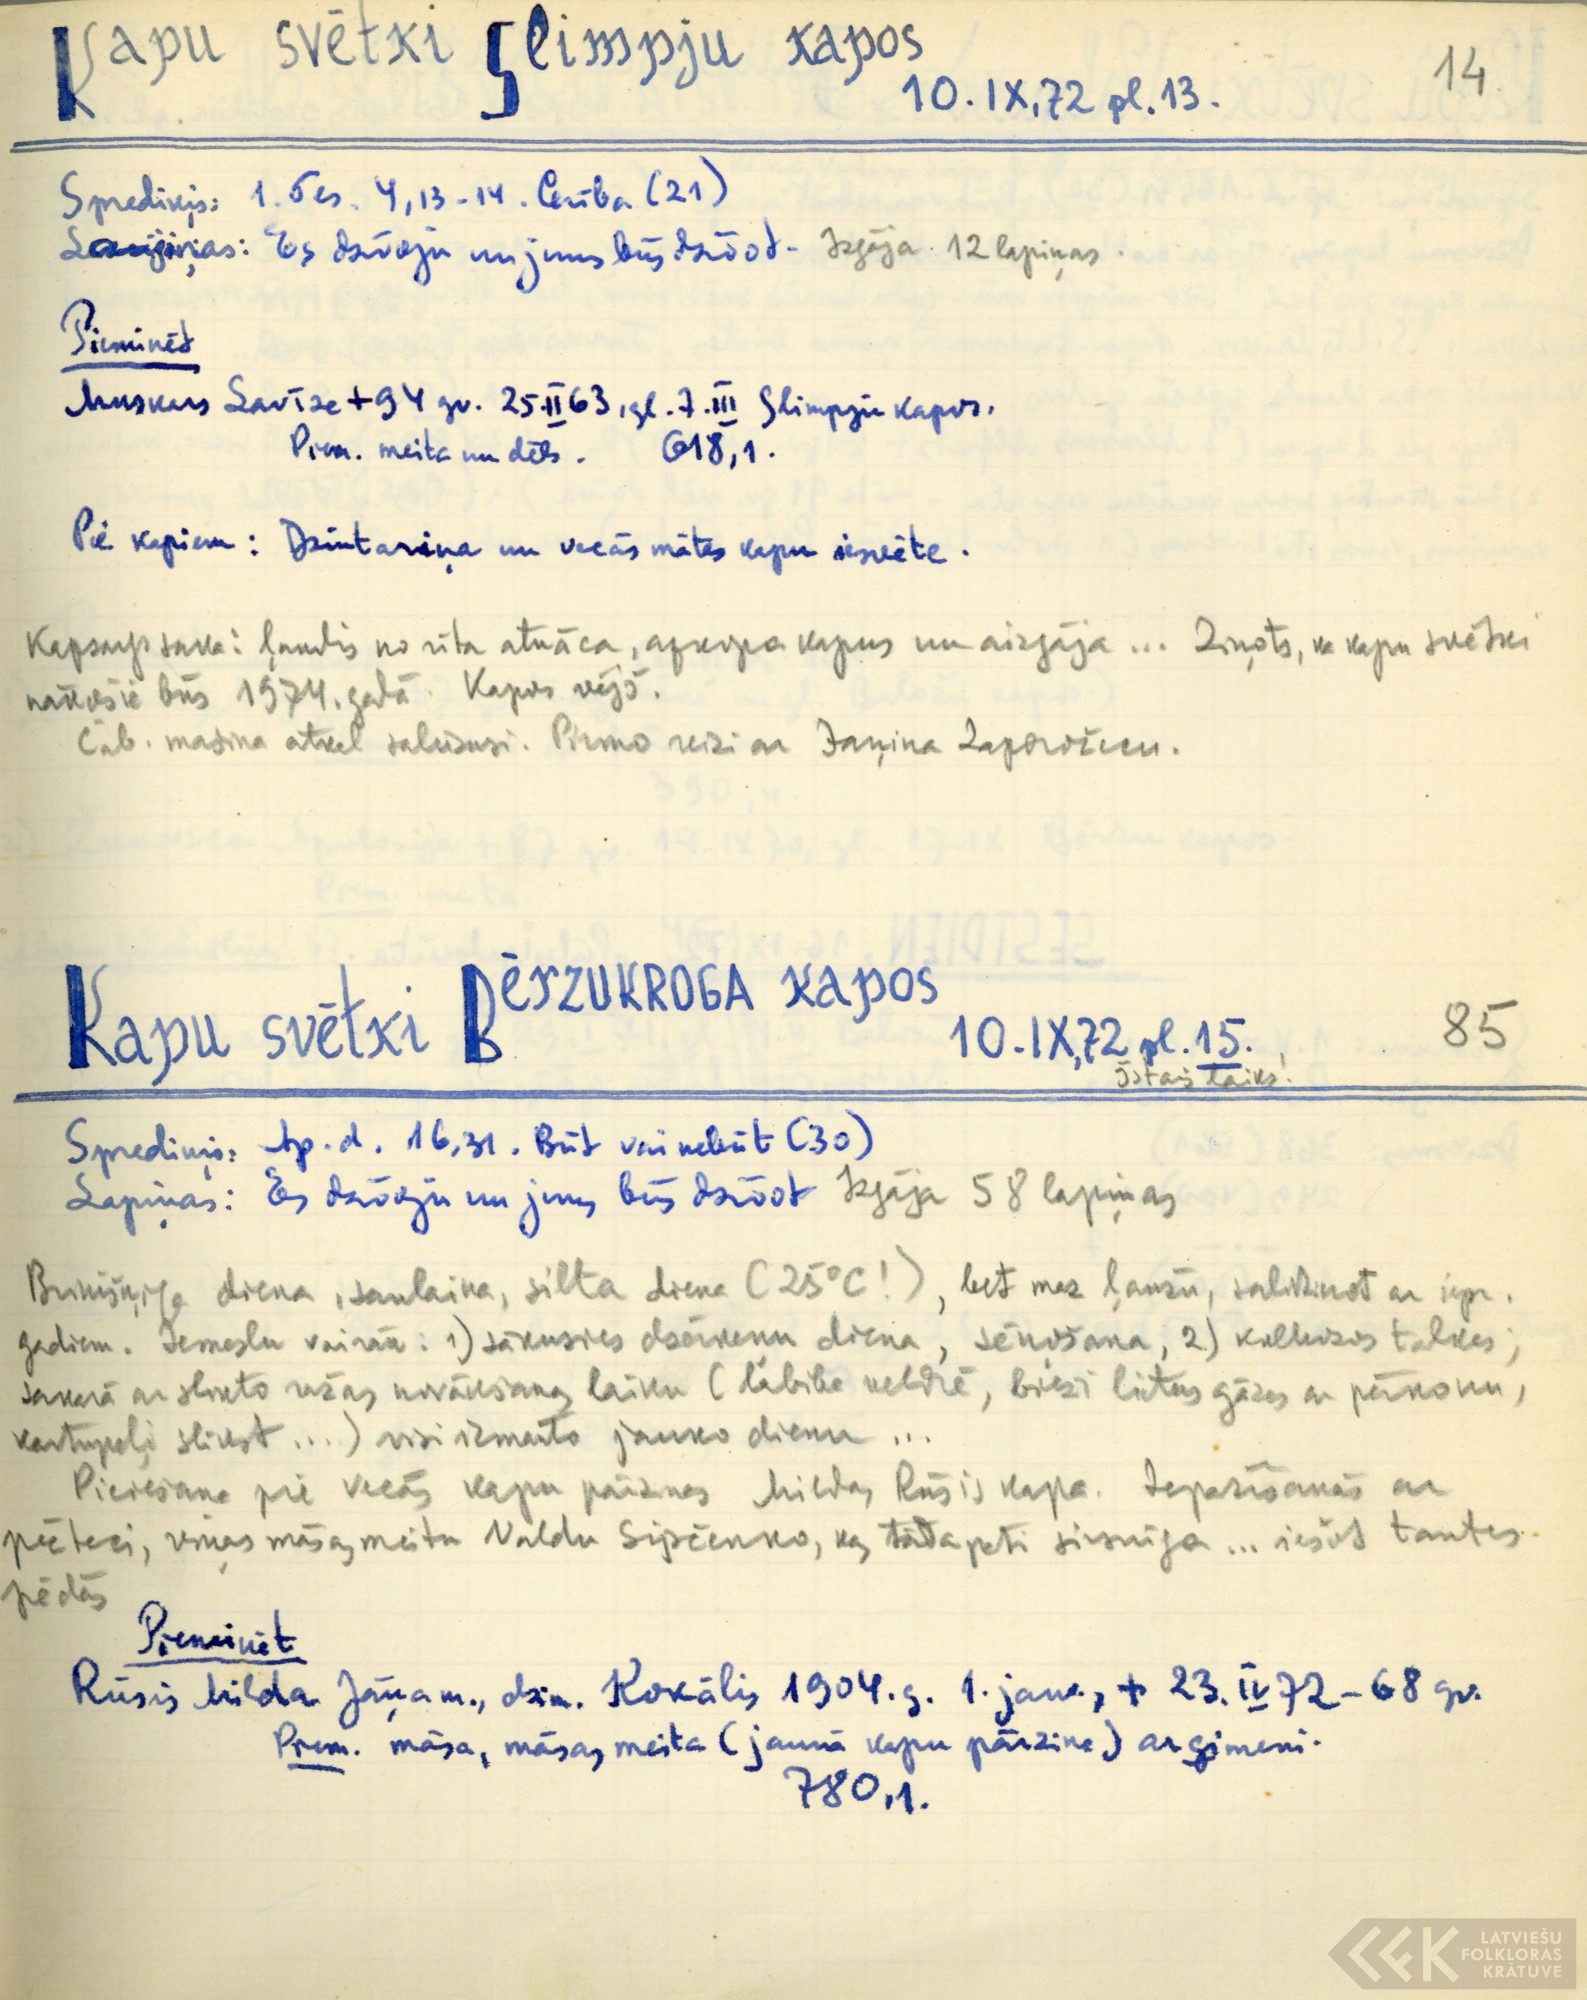 Kapu svētki Slimpju kapos
10.IX,72 pl.13.
14
Sprediķis: 1. Tes. 4,13-14. Cerība (21)
Lapiņas: Es dzīvoju un jums būs dzīvot. Izgāja 12 lapiņas.
Pieminēt
Muskars Lavīze +94 gv. 25.II 63, gl. 7.III Slimpju kapos.
Piem. meita un dēls. 618,1.
Pie kapiem: Dzintariņa un vecās mātes kapu iesvēte.
saka: ļaudis no rīta atnāca, apkopa kapus un aizgāja ... Ziņots, ka kapu svētki
nākošie būs 1974. gadā. Kapos vējš.
Čab. mašina atkal salūzusi. Pirmo reizi ar Jaņina
Kapu svētki BĒRZUKROGA kapos
10.IX,72 pl.15.
īstais laiks!
85
Sprediķis: Ap.d. 16,31. Būt vai nebūt (30)
Lapiņas: Es dzīvoju un jums būs dzīvot Izgāja 58 lapiņas
Brīnišķīga diena, saulaina, silta diena (25°C!), bet maz ļaužu, salīdzinot ar iepr.
gadiem. Iemeslu vairāk: 1) sākusies dzērveņu diena, sēņošana, 2) kolhozos talkas;
sakarā ar slikto ražas novākšanas laiku (labība veldrē, bieži lietus gāzes ar pērkonu,
kartupeļi slikst ...) visi izmanto jauko dienu ...
Pieiešana pie vecās kapu pārzines Mildas Rūsis kapa. Iepazīšanās ar
pēcteci, viņas māsas meitu Valdu Sipčenko, kas tāda pati sirsnīga ... iešot tantes
pēdās
Pieminēt
Rūsis Milda Jāņa m., dzim. Kokālis 1904.g. 1. janv., + 23.IV 72 - 68 gv.
Piem. māsa, māsas meita (jaunā kapu pārzine) ar ģimeni.
780,1.
LATVIEŠU
FOLKLORAS
KRĀTUVE